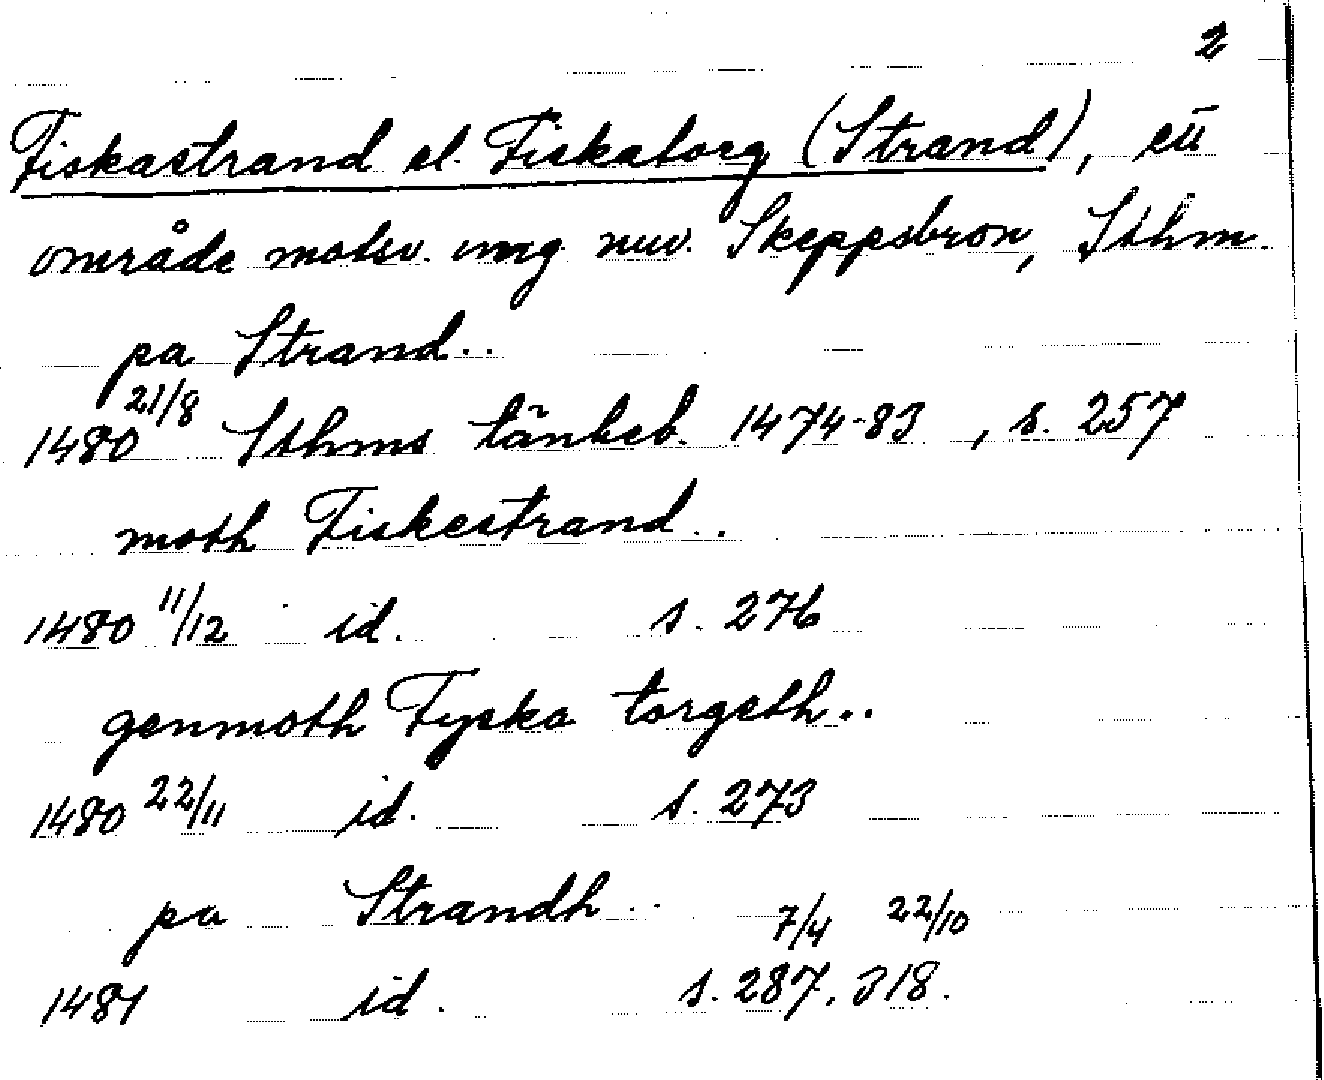 2
Fiskastrand el. Fiskatorg (Strand), ett
område motsv. ung. nuv. Skeppsbron, Sthm.
pa Strand..
1480 21/8 Sthms tänkeb. 1474-83, s. 257
moth Fiskestrand..
1480 11/12 id. s. 276
genmoth Fyska torgeth..
1480 22/11 id. s. 273
pa Strandh..
7/4 22/10
1481 id. s. 287, 318.